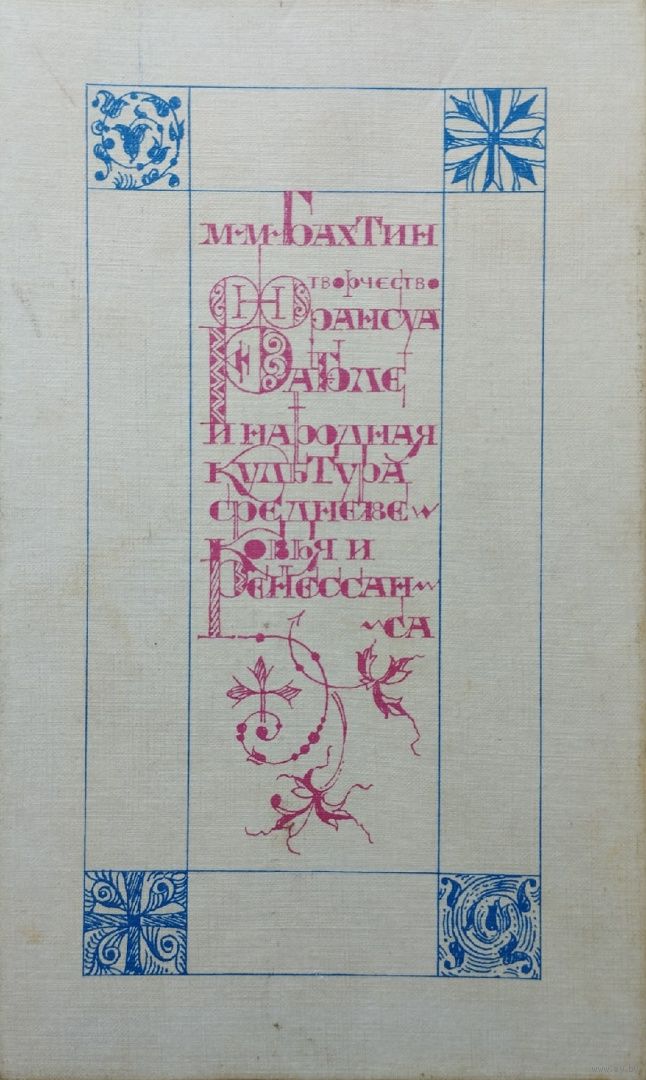 М·М·Бахтин
творчество
Франсуа
Рабле
и народная
культура
средневе
ковья и
Ренессан
са